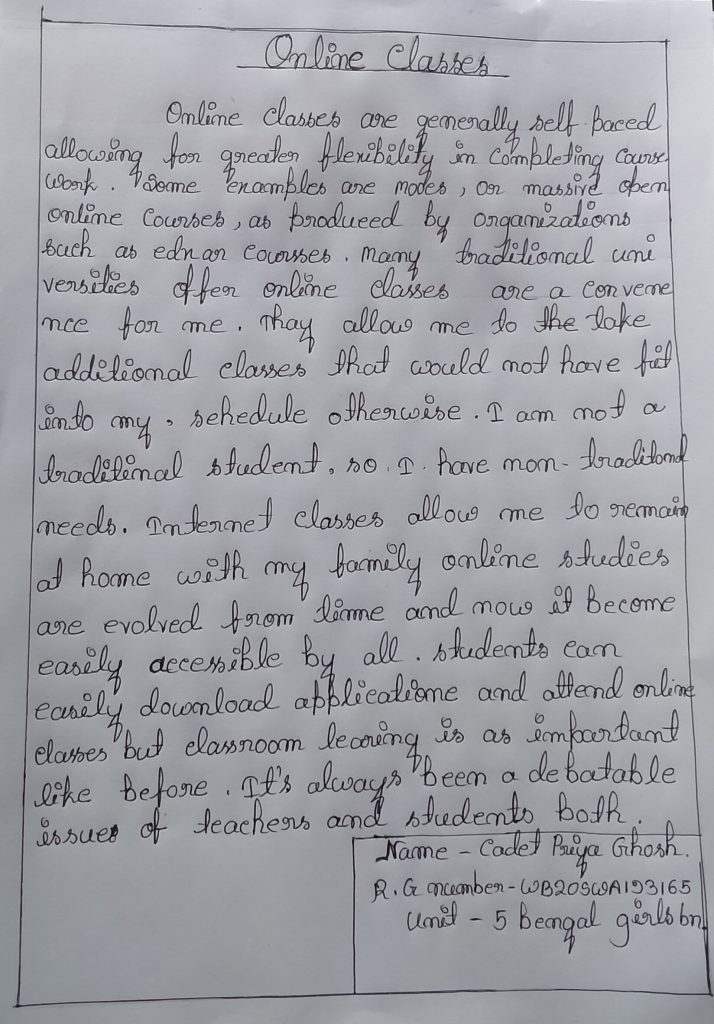 Online Classes
Online classes are generally self-paced
allowing for greater flexibility in completing course
work. Some examples are modes, or massive open
online courses, as produced by organizations
such as ednar courses. many traditional uni
versities offer online classes are a convene
nce for me. They allow me to the take
additional classes that would not have fit
into my, schedule otherwise. I am not a
traditinal student, so. I. have non-traditond
needs. Internet classes allow me to remain
at home with my family online studies
are evolved from time and now it become
easily accessible by all. students can
easily download applications and attend online
classes but classroom learing is as important
like before. It's always been a debatable
issues of teachers and students both.
Name - Cadet Priya Ghosh.
R.G number - WB20SWA193165
Unit - 5 Bengal girls bn